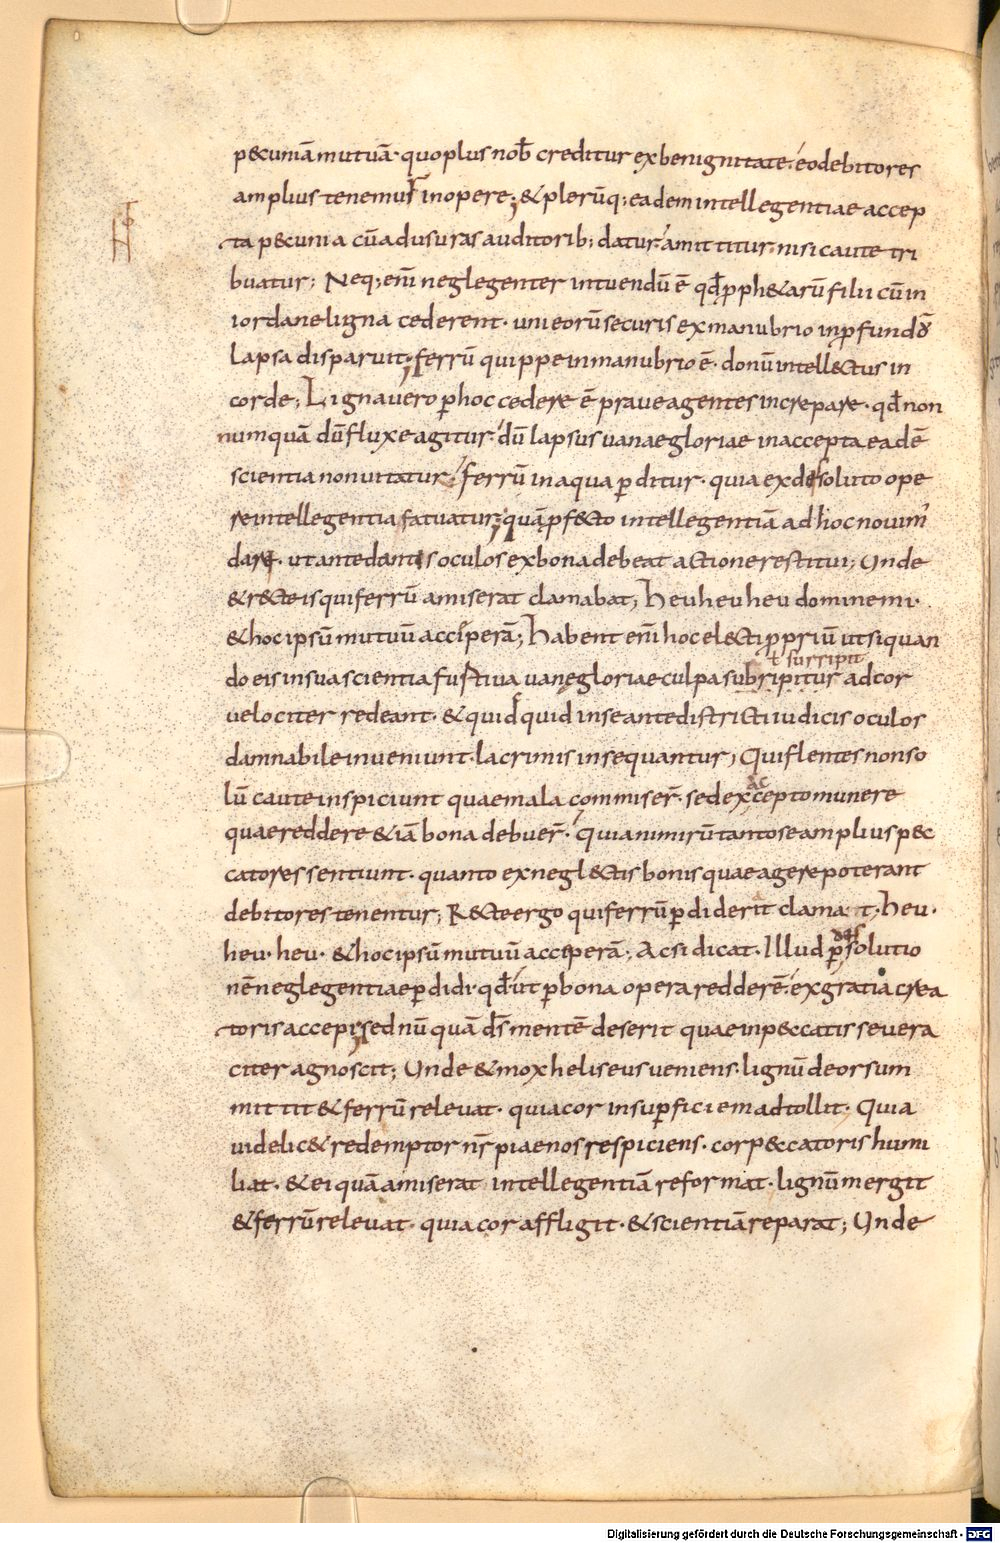 pecuniā mutuā· quo plus nob̄ creditur ex benignitate· eo debitores
amplius tenemur in opere; & plerūq; eadem intellegentiae accep
ta pecunia cū ad usuras auditorib; datur· amittitur nisi caute tri
buatur; Neq; enī neglegenter intuendū ē qđ ꝓph&arū filii cū in
iordane ligna cederent· uni eorū securis ex manubrio in ꝓfundo
lapsa disparuit; ferrū quippe in manubrio ē· donū intellectus in
corde; Ligna uero ꝑ hoc cedere ē praue agentes increpare· qđ non
numquā dū fluxe agitur· dū lapsus uanae gloriae in accepta eadē
scientia non uitatur; ferrū in aqua ꝑditur· quia ex desoluto ope
re intellegentia fatuatur; quā ꝓfecto intellegentiā ad hoc nouim̄
dare· ut ante dantis oculos ex bona debeat actione restitui; Unde
& recte is qui ferrū amiserat clamabat; Heu heu heu domine mi·
& hoc ipsū mutuū acceperā; Habent enī hoc electi ꝓpriū ut si quan
t surripit
do eis in sua scientia furtiua uanę gloriae culpa subripitur ad cor
uelociter redeant· & quidquid in se ante districti iudicis oculos
damnabile inueniunt· lacrimis insequantur; Qui flentes non so
lū caute inspiciunt quae mala commiser̄· sed ex accepto munere
quae reddere & iā bona debuer̄· quia nimirū tanto se amplius pec
catores sentiunt· quanto ex neglectis bonis quae agere poterant
debitores tenentur; Recte ergo qui ferrū ꝑdiderit clamat· Heu·
heu· heu· & hoc ipsū mutuū acceperā; Ac si dicat· Illud ꝑ desolutio
nē neglegentiae ꝑdidi· qđ ut ꝑ bona opera redderē· ex gratia crea
toris accepi; sed nūquā dī mentē deserit quae in peccatis se uera
citer agnoscit; Unde & mox heliseus ueniens· lignū deorsum
mittit & ferrū releuat· quia cor in suꝑficiem adtollit· Quia
uidelic& redemptor nr̄ piae nos respiciens· cor peccatoris humi
liat· & ei quā amiserat intellegentiā reformat· lignū mergit
& ferrū releuat· quia cor affligit· & scientiā reparat; Unde
Digitalisierung gefördert durch die Deutsche Forschungsgemeinschaft - DFG